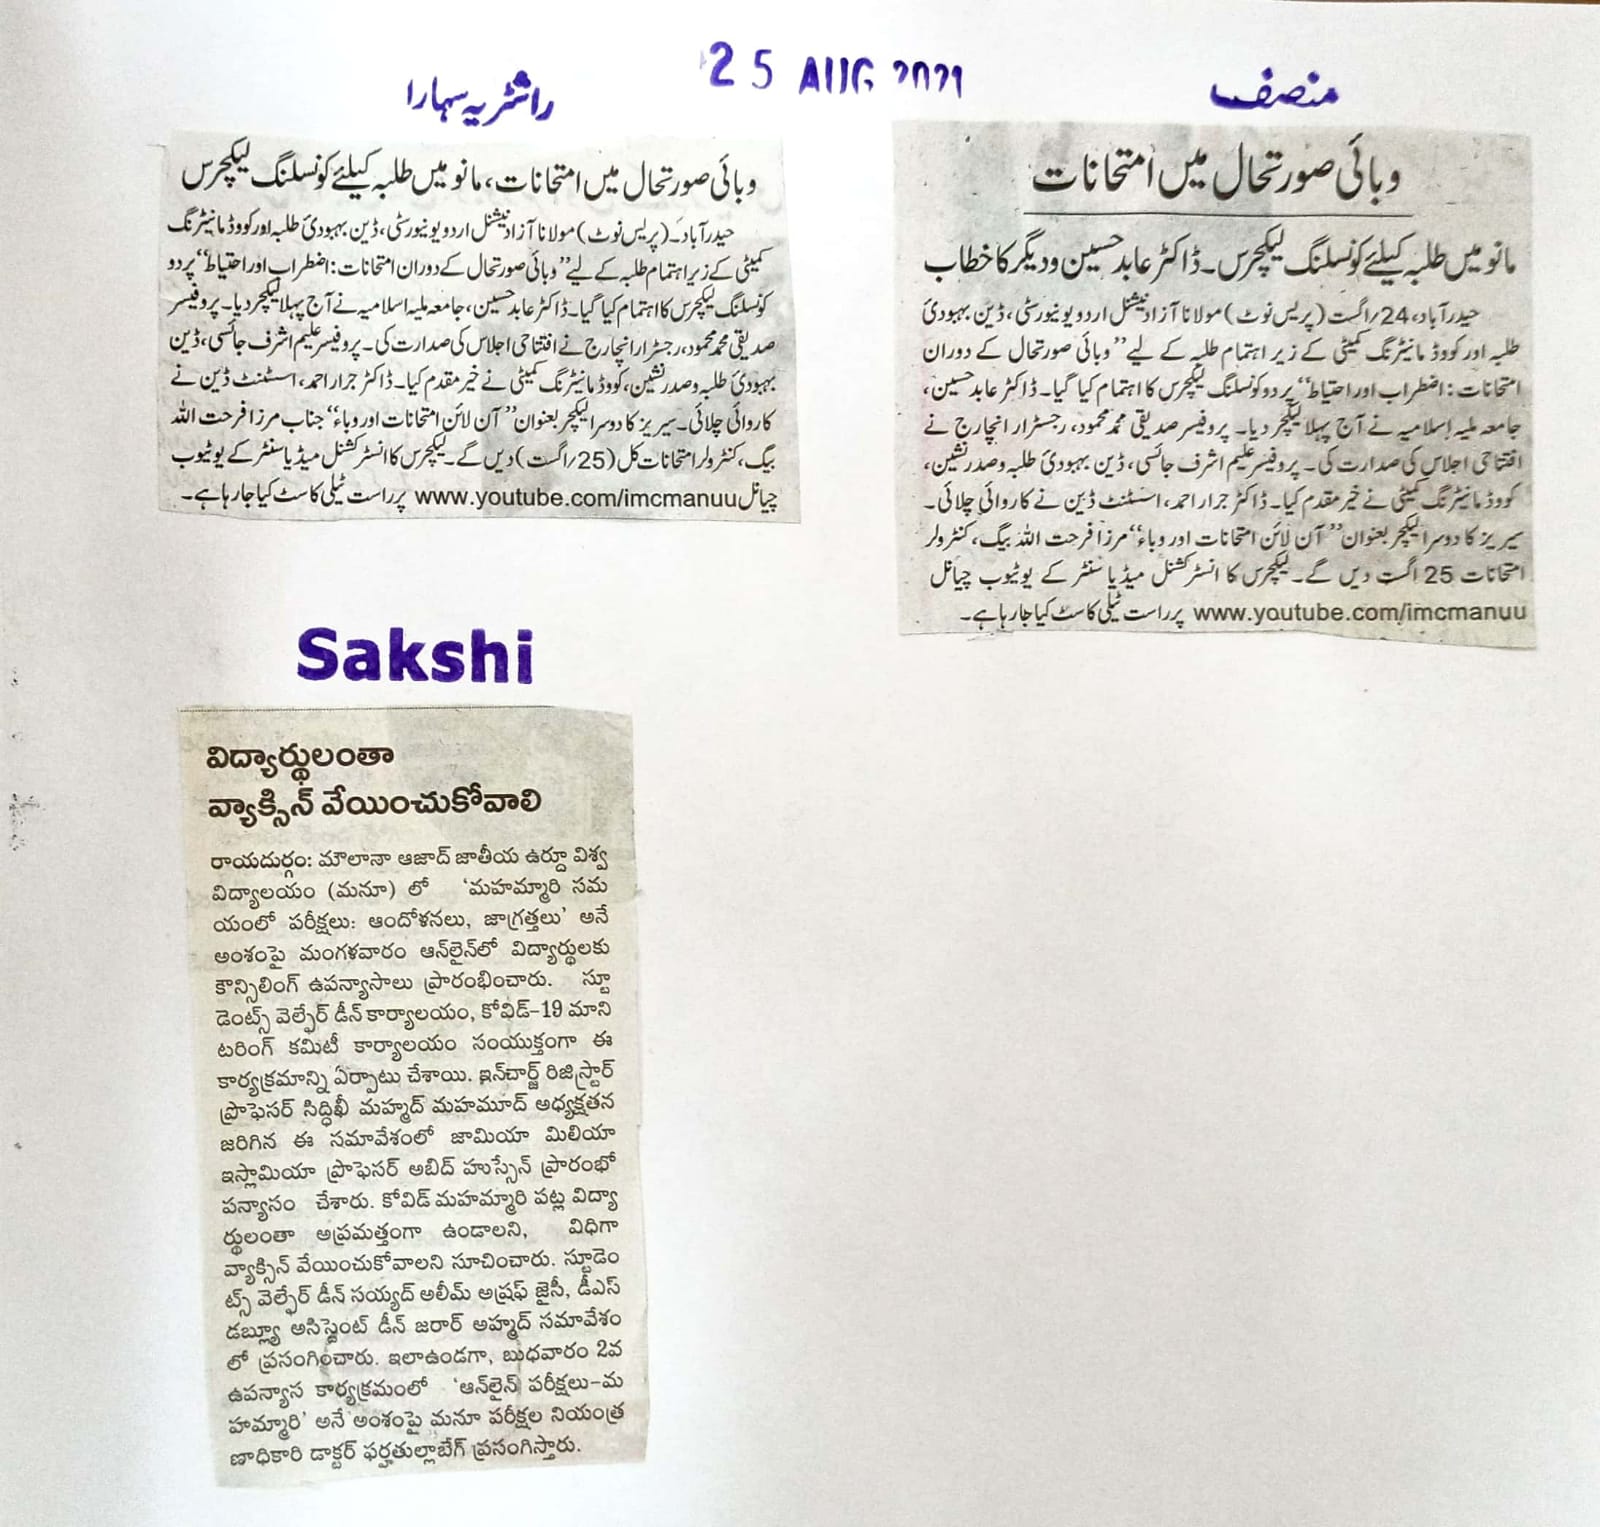 25 AUG 2021
راشٹریہ سہارا
وبائی صورتحال میں امتحانات، مانو میں طلبہ کیلئے کونسلنگ لیکچرس
حیدرآباد۔ (پریس نوٹ) مولانا آزاد نیشنل اردو یونیورسٹی، ڈین بہبودیٔ طلبہ اور کووڈ مانیٹرنگ
کمیٹی کے زیر اہتمام طلبہ کے لیے ”وبائی صورتحال کے دوران امتحانات: اضطراب اور احتیاط“ پر دو
کونسلنگ لیکچرس کا اہتمام کیا گیا۔ ڈاکٹر عابد حسین، جامعہ ملیہ اسلامیہ نے آج پہلا لیکچر دیا۔ پروفیسر
صدیقی محمد محمود، رجسٹرار انچارج نے افتتاحی اجلاس کی صدارت کی۔ پروفیسر علیم اشرف جائسی، ڈین
بہبودیٔ طلبہ و صدر نشین، کووڈ مانیٹرنگ کمیٹی نے خیر مقدم کیا۔ ڈاکٹر جرار احمد، اسسٹنٹ ڈین نے
کاروائی چلائی۔ سیریز کا دوسرا لیکچر بعنوان ”آن لائن امتحانات اور وباء“ جناب مرزا فرحت اللہ
بیگ، کنٹرولر امتحانات کل (25/اگست) دیں گے۔ لیکچرس کا انسٹرکشنل میڈیا سنٹر کے یوٹیوب
چیانل www.youtube.com/imcmanuu پر راست ٹیلی کاسٹ کیا جارہا ہے۔
منصف
وبائی صورتحال میں امتحانات
مانو میں طلبہ کیلئے کونسلنگ لیکچرس۔ ڈاکٹر عابد حسین و دیگر کا خطاب
حیدرآباد، 24/اگست (پریس نوٹ) مولانا آزاد نیشنل اردو یونیورسٹی، ڈین بہبودیٔ
طلبہ اور کووڈ مانیٹرنگ کمیٹی کے زیر اہتمام طلبہ کے لیے ”وبائی صورتحال کے دوران
امتحانات: اضطراب اور احتیاط“ پر دو کونسلنگ لیکچرس کا اہتمام کیا گیا۔ ڈاکٹر عابد حسین،
جامعہ ملیہ اسلامیہ نے آج پہلا لیکچر دیا۔ پروفیسر صدیقی محمد محمود، رجسٹرار انچارج نے
افتتاحی اجلاس کی صدارت کی۔ پروفیسر علیم اشرف جائسی، ڈین بہبودیٔ طلبہ و صدر نشین،
کووڈ مانیٹرنگ کمیٹی نے خیر مقدم کیا۔ ڈاکٹر جرار احمد، اسسٹنٹ ڈین نے کاروائی چلائی۔
سیریز کا دوسرا لیکچر بعنوان ”آن لائن امتحانات اور وباء“ مرزا فرحت اللہ بیگ، کنٹرولر
امتحانات 25 اگست دیں گے۔ لیکچرس کا انسٹرکشنل میڈیا سنٹر کے یوٹیوب چیانل
www.youtube.com/imcmanuu پر راست ٹیلی کاسٹ کیا جارہا ہے۔
Sakshi
విద్యార్థులంతా
వ్యాక్సిన్ వేయించుకోవాలి
రాయదుర్గం: మౌలానా ఆజాద్ జాతీయ ఉర్దూ విశ్వ
విద్యాలయం (మనూ) లో 'మహమ్మారి సమ
యంలో పరీక్షలు: ఆందోళనలు, జాగ్రత్తలు' అనే
అంశంపై మంగళవారం ఆన్‌లైన్‌లో విద్యార్థులకు
కౌన్సిలింగ్ ఉపన్యాసాలు ప్రారంభించారు. స్టూ
డెంట్స్ వెల్ఫేర్ డీన్ కార్యాలయం, కోవిడ్–19 మాని
టరింగ్ కమిటీ కార్యాలయం సంయుక్తంగా ఈ
కార్యక్రమాన్ని ఏర్పాటు చేశాయి. ఇన్‌చార్జ్ రిజిస్ట్రార్
ప్రొఫెసర్ సిద్ధిఖీ మహ్మద్ మహమూద్ అధ్యక్షతన
జరిగిన ఈ సమావేశంలో జామియా మిలియా
ఇస్లామియా ప్రొఫెసర్ అబిద్ హుస్సేన్ ప్రారంభో
పన్యాసం చేశారు. కోవిడ్ మహమ్మారి పట్ల విద్యా
ర్థులంతా అప్రమత్తంగా ఉండాలని, విధిగా
వ్యాక్సిన్ వేయించుకోవాలని సూచించారు. స్టూడెం
ట్స్ వెల్ఫేర్ డీన్ సయ్యద్ అలీమ్ అష్రఫ్ జైసీ, డీఎస్
డబ్ల్యూ అసిస్టెంట్ డీన్ జరార్ అహ్మద్ సమావేశం
లో ప్రసంగించారు. ఇలాఉండగా, బుధవారం 2వ
ఉపన్యాస కార్యక్రమంలో 'ఆన్‌లైన్ పరీక్షలు–మ
హమ్మారి' అనే అంశంపై మనూ పరీక్షల నియంత్ర
ణాధికారి డాక్టర్ ఫర్హతుల్లాబేగ్ ప్రసంగిస్తారు.